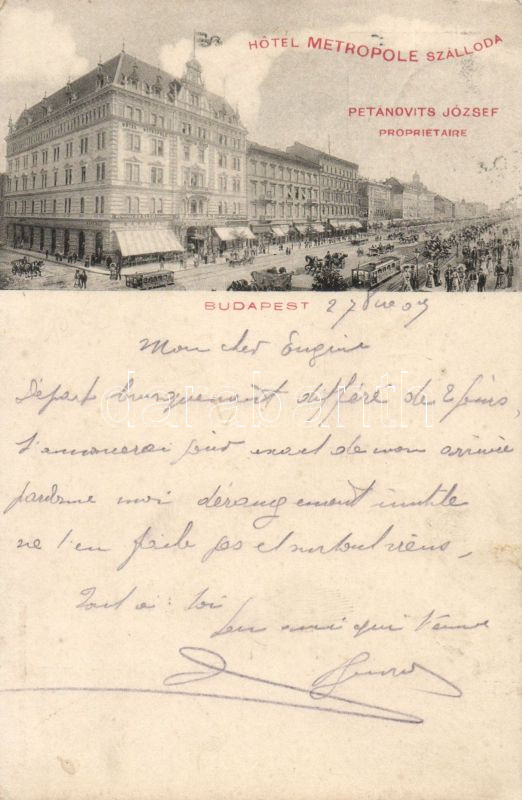 HÔTEL METROPOLE SZÁLLODA
PETANOVITS JÓZSEF
PROPRIÉTAIRE
HOTEL METROPOLE
BUDAPEST 27
Mon cher Eugène
Départ brusquement différé de 2 jours,
t'annoncerai jour exact de mon arrivée
pardonne moi dérangement inutile
ne t'en fache pas et surtout viens,
Tout à toi
ton ami qui t'aime
darabanth